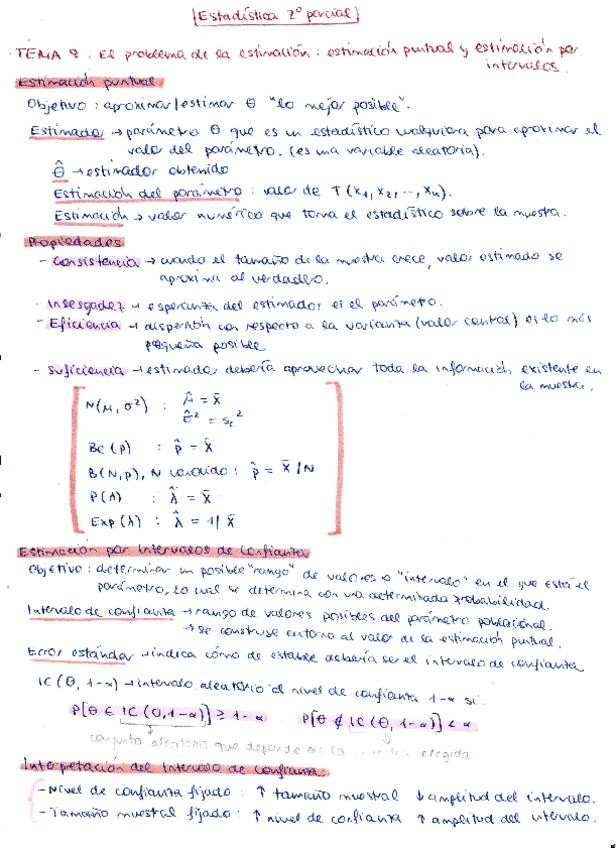 Estadística 2º parcial
TEMA 8: El problema de la estimación: estimación puntual y estimación por
intervalos.
Estimación puntual
Objetivo: aproximar/estimar θ "lo mejor posible".
Estimador → parámetro θ que es un estadístico cualquiera para aproximar el
valor del parámetro. (es una variable aleatoria).
θ̂ → estimador obtenido
Estimación del parámetro: valor de T(x₁, x₂, ..., xₙ).
Estimación → valor numérico que toma el estadístico sobre la muestra.
Propiedades
- Consistencia → cuando el tamaño de la muestra crece, valor estimado se
aproxima al verdadero.
- Insesgadez → esperanza del estimador es el parámetro.
- Eficiencia → dispersión con respecto a la varianza (valor central) es lo más
pequeña posible
- Suficiencia → estimador debería aprovechar toda la información existente en
la muestra.
N(μ, σ²) : μ̂ = x̄
σ̂² = s꜀²
Be(p) : p̂ = x̄
B(N,p), N conocido: p̂ = x̄/N
P(λ) : λ̂ = x̄
Exp(λ) : λ̂ = 1/x̄
Estimación por Intervalos de Confianza
Objetivo: determinar un posible "rango" de valores o "intervalo" en el que está el
parámetro, lo cual se determina con una determinada probabilidad.
Intervalo de confianza → rango de valores posibles del parámetro poblacional.
→ se construye entorno al valor de la estimación puntual.
Error estándar → indica cómo de estable debería ser el intervalo de confianza
IC(θ, 1-α) → intervalo aleatorio al nivel de confianza 1-α si:
P[θ ∈ IC(θ, 1-α)] ≥ 1-α P[θ ∉ IC(θ, 1-α)] < α
conjunto aleatorio que depende de la muestra elegida
Interpretación del Intervalo de Confianza:
- Nivel de confianza fijado: ↑ tamaño muestral ↓ amplitud del intervalo.
- Tamaño muestral fijado: ↑ nivel de confianza ↑ amplitud del intervalo.